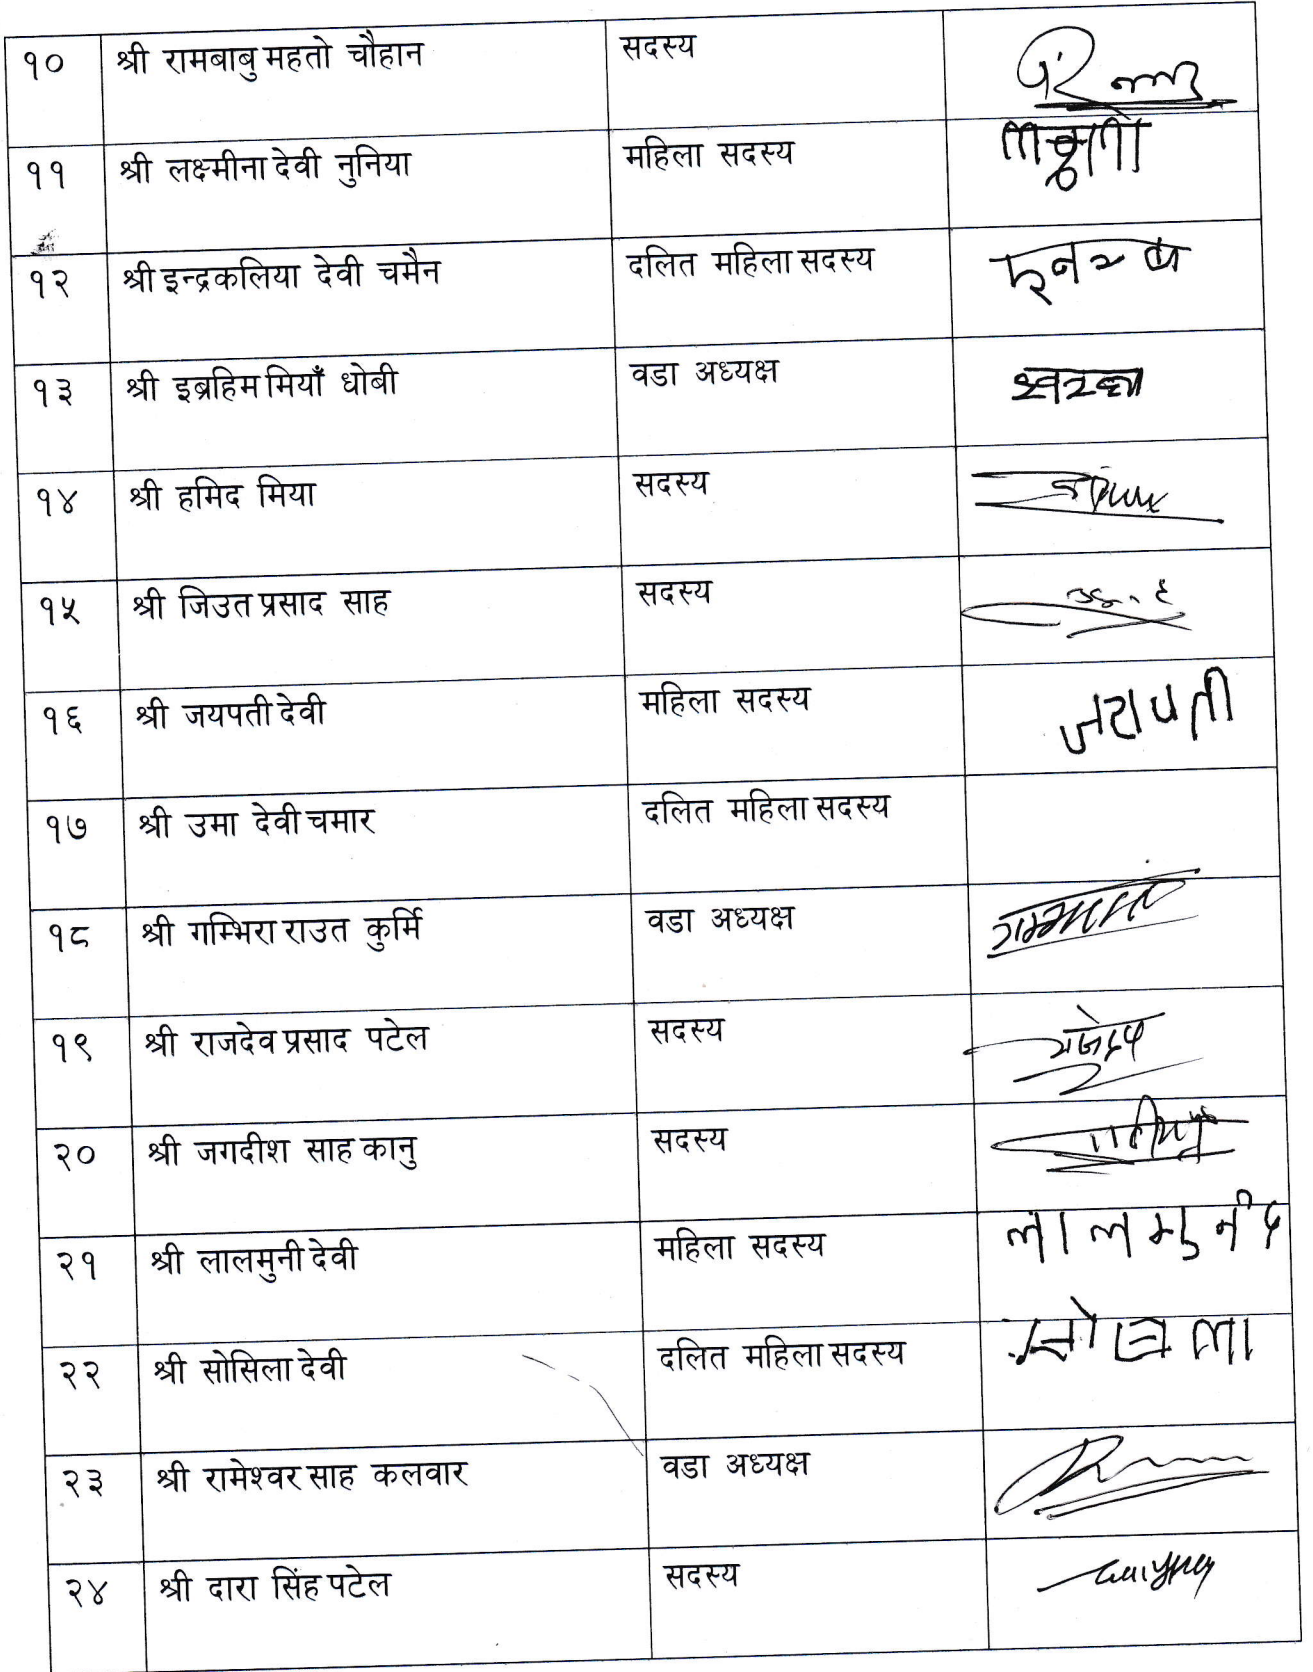 १० श्री रामबाबु महतो चौहान सदस्य
११ श्री लक्ष्मीना देवी नुनिया महिला सदस्य
१२ श्री इन्द्रकलिया देवी चमैन दलित महिला सदस्य
१३ श्री इब्रहिम मियाँ धोबी वडा अध्यक्ष
१४ श्री हमिद मिया सदस्य
१५ श्री जिउत प्रसाद साह सदस्य
१६ श्री जयपती देवी महिला सदस्य जयपती
१७ श्री उमा देवी चमार दलित महिला सदस्य
१८ श्री गम्भिरा राउत कुर्मि वडा अध्यक्ष
१९ श्री राजदेव प्रसाद पटेल सदस्य
२० श्री जगदीश साह कानु सदस्य
२१ श्री लालमुनी देवी महिला सदस्य लालमुनी द
२२ श्री सोसिला देवी दलित महिला सदस्य
२३ श्री रामेश्वर साह कलवार वडा अध्यक्ष
२४ श्री दारा सिंह पटेल सदस्य